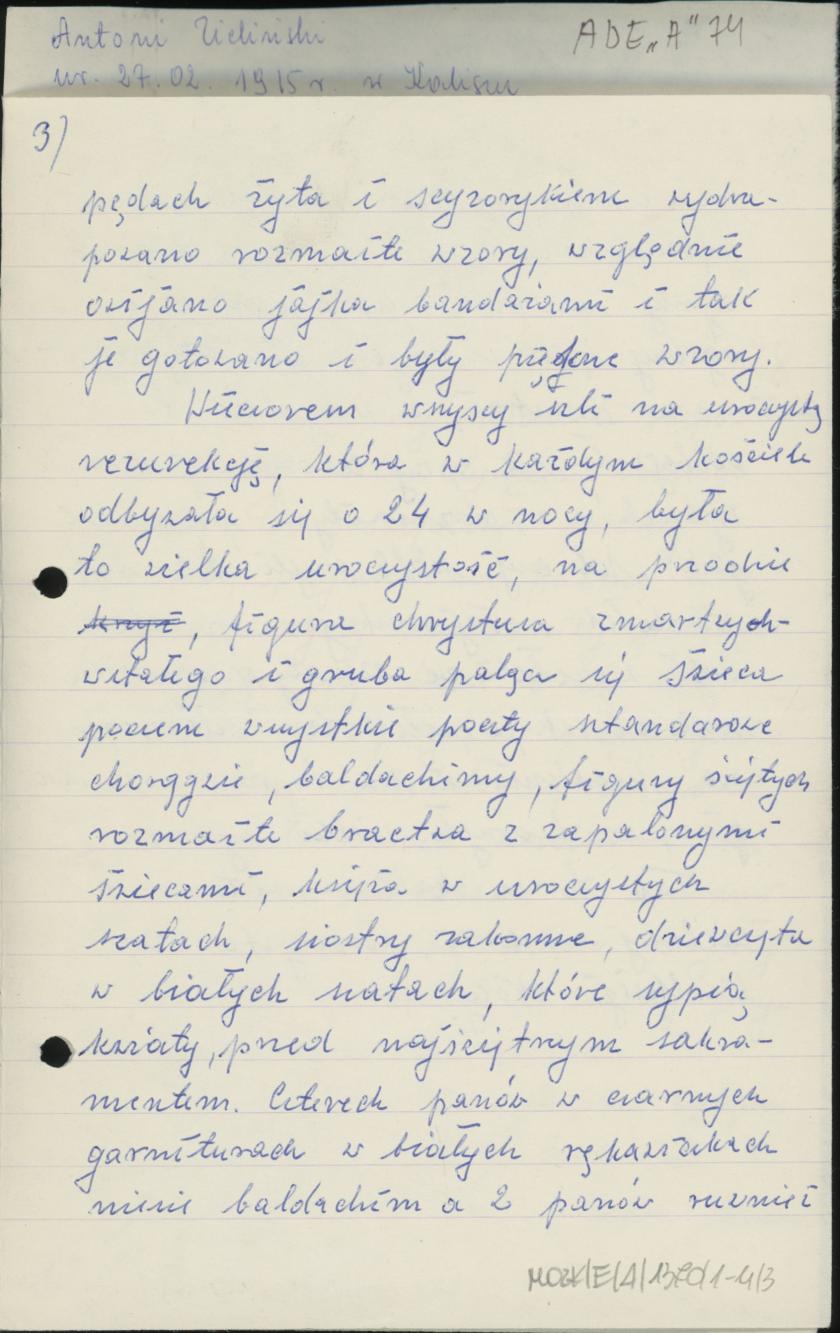 Antoni Zieliński ADE „A" 74
ur. 27.02. 1915 r. w Kaliszu
3)
pędach żyta i scyzorykiem wydra-
powano rozmaite wzory, względnie
owijano jajka bandażami i tak
je gotowano i były piękne wzory.
Wieczorem wszyscy szli na uroczystą
rezurekcję, która w każdym kościele
odbywała się o 24 w nocy, była
to wielka uroczystość, na przodzie
krzyż, figura chrystusa zmartwych-
wstałego i gruba paląca się świeca
poczem wszystkie poczty sztandarowe
chorągwie, baldachimy, figury świętych
rozmaite bractwa z zapalonymi
świecami, księża w uroczystych
szatach, siostry zakonne, dziewczęta
w białych szatach, które sypią
kwiaty, przed najświętszym sakra-
mentem. Czterech panów w czarnych
garniturach w białych rękawiczkach
niesie baldachim a 2 panów również
MOZK/E/A/1370/1-4/3